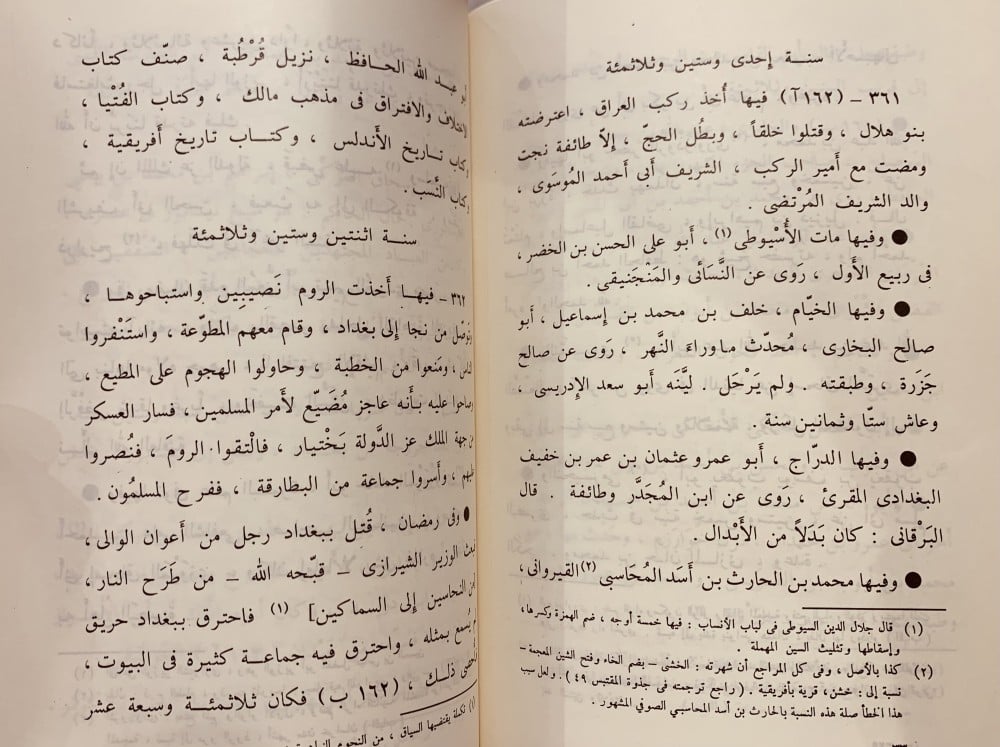 سنـة إحدى وستين وثلاثمئة
٣٦١ - (١٦٢آ) فيها أُخذ ركب العراق ، اعترضته
بنو هلال ، وقتلوا خلقاً ، وبطُل الحجّ ، إلاّ طائفة نجت
ومضت مع أَمير الركب ، الشريف أبى أحمد المُوسَوى ،
والد الشريف المُرْتضى .
● وفيها مات الأُسْيوطى (١) ، أَبو على الحسن بن الخضر ،
فى ربيع الأَول ، رَوى عن النَّسَائى والمَنْجَنيقى .
● وفيها الخيّام ، خلف بن محمد بن إسماعيل ، أبو
صالح البخارى ، مُحدّث ماوراءَ النَّهر ، رَوى عن صالح
جَزَرة ، وطبقته . ولم يَرْحَل . ليَّنَه أَبو سعد الإدريسى ،
وعاش ستّا وثمانين سنة .
● وفيها الدرّاج ، أَبو عمرو عثمان بن عمر بن خفيف
البغدادى المقرئ ، رَوى عن ابن المُجَدَّر وطائفة . قال
البَرْقانى : كان بَدَلاً من الأَبْدال .
● وفيها محمد بن الحارث بن أَسَد المُحَاسبى (٢) القيروانى ،
(١) قال جلال الدين السيوطى فى لباب الأنساب : فيها خمسة أوجه ، ضم الهمزة وكسرها ،
وإسقاطها وتثليث السين المهملة .
(٢) كذا بالأصل ، وفى كل المراجع أن شهرته : الخشنى – بضم الخاء وفتح الشين المعجمة –
نسبة إلى : خشن ، قرية بأفريقية . ( راجع ترجمته فى جذوة المقتبس ٤٩ ) . ولعل سبب
هذا الخطأ صلة هذه النسبة بالحارث بن أسد المحاسبي الصوفي المشهور .
أبو عبـد الله الحـافظ ، نزيل قُرْطُبة ، صنّف كتاب
الاختلاف والافتراق فى مذهب مالك ، وكتاب الفُتْيا ،
وكتاب تـاريخ الأَندلس ، وكتـاب تاريخ أَفريقية ،
وكتاب النَّسَب .
سنـة اثنتين وستين وثلاثمئة
٣٦٢ - فيهـا أَخذت الروم نَصيبِين واستباحوهـا ،
وتوصّل من نجا إلى بغداد ، وقام معهم المطوّعة ، واستَنْفروا
الناس ، ومَنعوا من الخطبة ، وحاولوا الهجوم على المطيع ،
وصاحوا عليه بأَنه عاجز مُضَيّع لأَمر المسلمين ، فسار العسكر
من جهة الملك عز الدَّولة بَخْتيار ، فالْتقوا الروم ، فنُصروا
عليهم ، وأَسروا جماعة من البطارقة ، ففرح المسلمُون .
● وفى رمضان ، قُتـل ببغداد رجل من أَعوان الوالى ،
فبعث الوزير الشيرازى – قبّحه الله – من طَرَح النار ،
من النحاسين إلى السماكين] (١) فاحترق ببغداد حريق
لم يُسمع بمثله ، واحترق فيه جمـاعة كثيرة فى البيوت ،
فأُحصى ذلـك ، (١٦٢ ب) فكان ثلاثمئـة وسبعة عشر
(١) تكملة يقتضيها السياق ، من النجوم